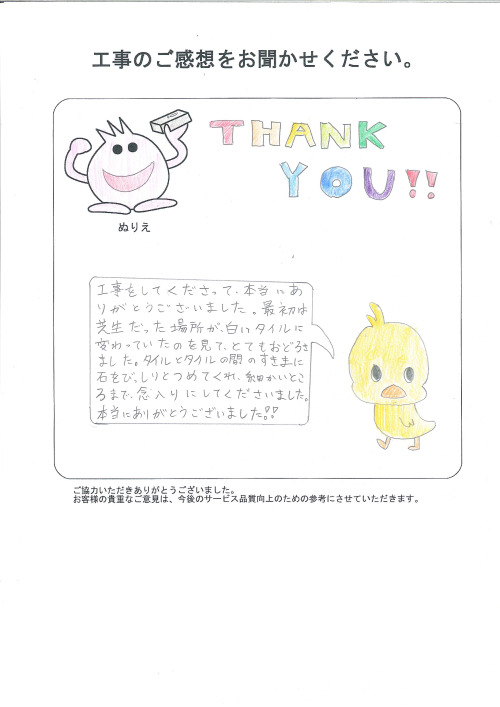 工事のご感想をお聞かせください。
THANK
YOU!!
ぬりえ
工事をしてくださって、本当にあ
りがとうございました。最初は
芝生だった場所が、白いタイルに
変わっていたのを見て、とてもおどろき
ました。タイルとタイルの間のすきまに
石をびっしりとつめてくれ、細かいとこ
ろまで、念入りにしてくださいました。
本当にありがとうございました!!
ご協力いただきありがとうございました。
お客様の貴重なご意見は、今後のサービス品質向上のための参考にさせていただきます。